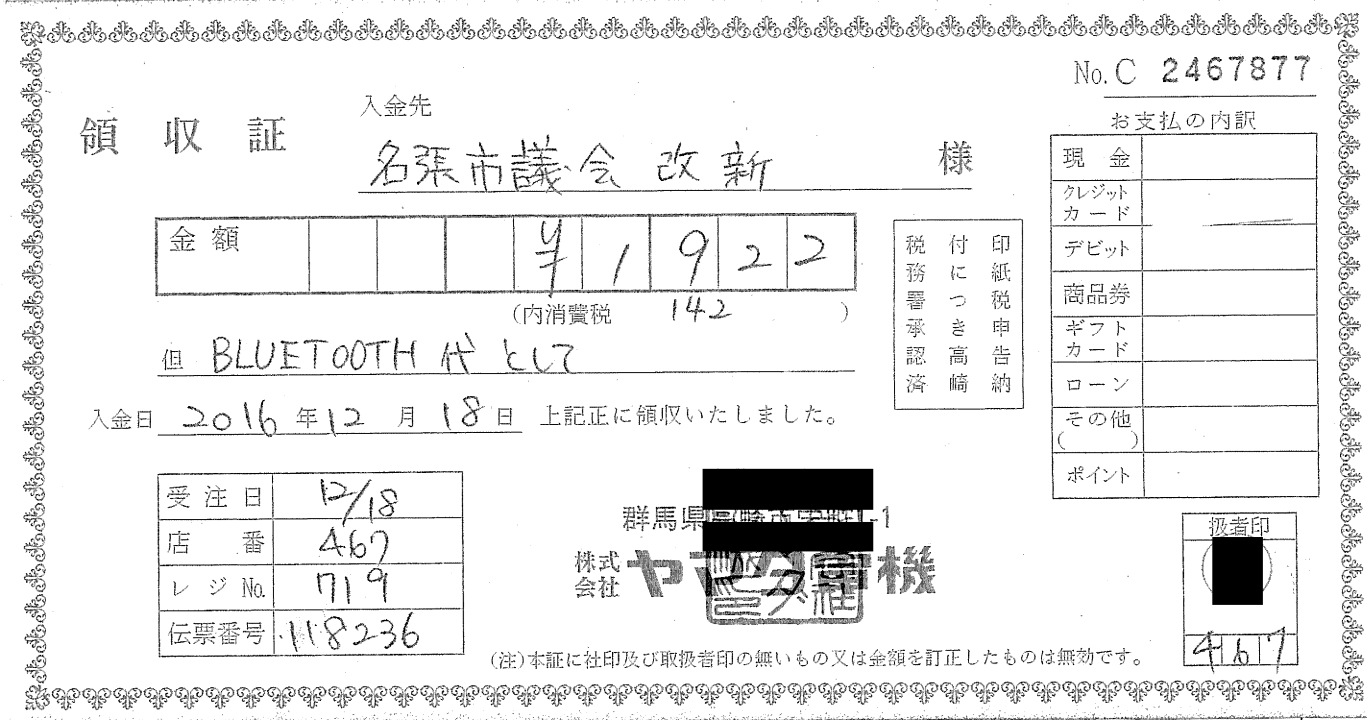 No. C 2467877
領収証
入金先
名張市議会 改新 様
金額 ¥1922
(内消費税 142 )
但 BLUETOOTH 代 として
入金日 2016 年 12 月 18 日 上記正に領収いたしました。
印紙税申告納
付につき高崎
税務署承認済
お支払の内訳
現金
クレジットカード
デビット
商品券
ギフトカード
ローン
その他
( )
ポイント
受注日 12/18
店番 467
レジNo. 719
伝票番号 118236
群馬県高崎市栄町1-1
株式会社 ヤマダ電機
扱者印
467
(注)本証に社印及び取扱者印の無いもの又は金額を訂正したものは無効です。